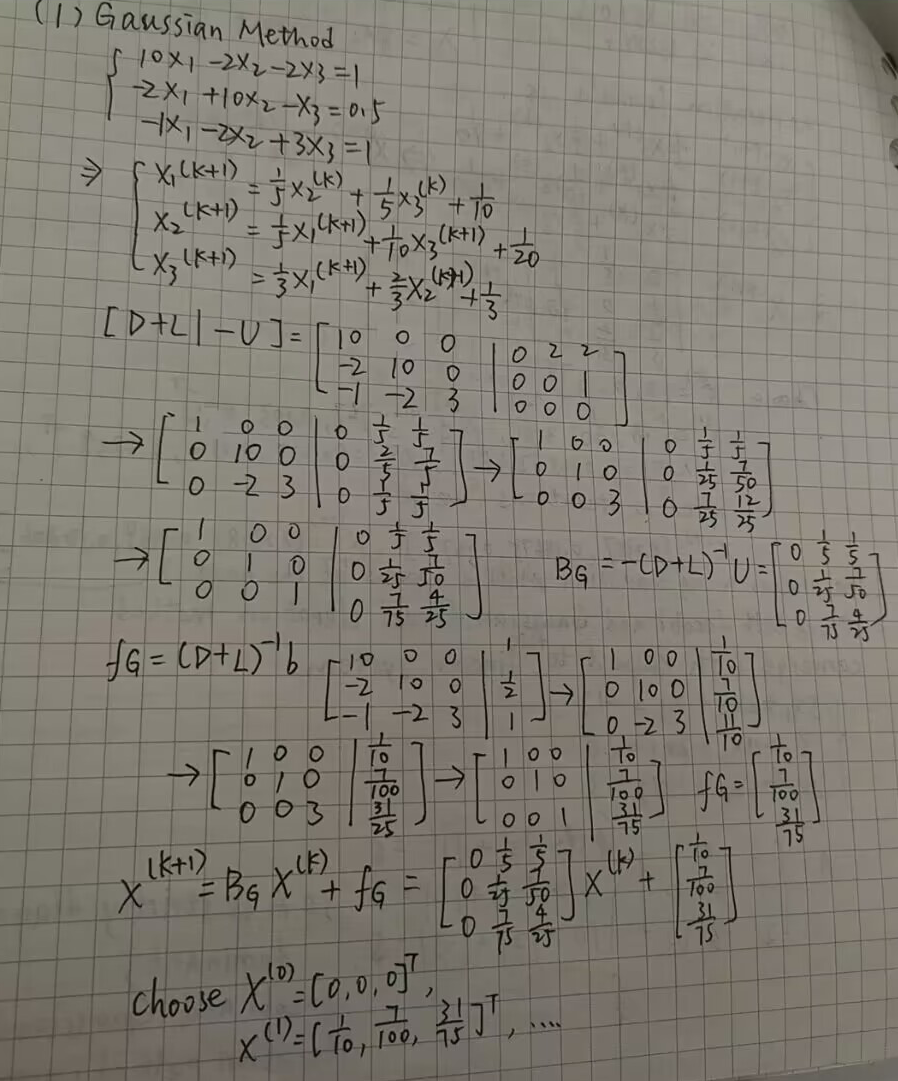 (1) Gaussian Method
{ 10x₁ -2x₂ -2x₃ = 1
-2x₁ +10x₂ -x₃ = 0.5
-1x₁ -2x₂ +3x₃ = 1
⇒ { x₁^(k+1) = 1/5 x₂^(k) + 1/5 x₃^(k) + 1/10
x₂^(k+1) = 1/5 x₁^(k+1) + 1/10 x₃^(k+1) + 1/20
x₃^(k+1) = 1/3 x₁^(k+1) + 2/3 x₂^(k+1) + 1/3
[D+L | -U] = [10 0 0 | 0 2 2; -2 10 0 | 0 0 1; -1 -2 3 | 0 0 0]
→ [1 0 0 | 0 1/5 1/5; 0 10 0 | 0 2/5 7/5; 0 -2 3 | 0 1/5 1/5] → [1 0 0 | 0 1/5 1/5; 0 1 0 | 0 1/25 7/50; 0 0 3 | 0 7/25 12/25]
→ [1 0 0 | 0 1/5 1/5; 0 1 0 | 0 1/25 7/50; 0 0 1 | 0 7/75 4/25] B_G = -(D+L)^-1 U = [0 1/5 1/5; 0 1/25 7/50; 0 7/75 4/25]
f_G = (D+L)^-1 b [10 0 0 | 1; -2 10 0 | 1/2; -1 -2 3 | 1] → [1 0 0 | 1/10; 0 10 0 | 7/10; 0 -2 3 | 11/10]
→ [1 0 0 | 1/10; 0 1 0 | 7/100; 0 0 3 | 31/25] → [1 0 0 | 1/10; 0 1 0 | 7/100; 0 0 1 | 31/75] f_G = [1/10; 7/100; 31/75]
X^(k+1) = B_G X^(k) + f_G = [0 1/5 1/5; 0 1/25 7/50; 0 7/75 4/25] X^(k) + [1/10; 7/100; 31/75]
choose X^(0) = [0, 0, 0]^T,
X^(1) = [1/10, 7/100, 31/75]^T, ....